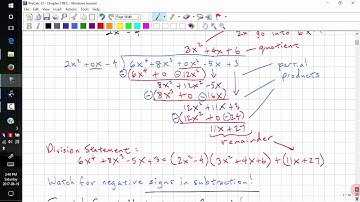 PreCalc 12 - Chapter 1 REC - Windows Journal
2x² - 4
2x go into 6x
3x² + 4x + 6 ← quotient
2x² + 0x - 4 6x⁴ + 8x³ + 0x² - 5x + 3
⊖ 6x⁴ + 0 ⊖ 12x²
8x³ + 12x² - 5x
⊖ 8x³ + 0 ⊖ 16x
partial
products
12x² + 11x + 3
⊖ 12x² + 0 ⊖ 24
11x + 27
remainder
Division Statement:
6x⁴ + 8x³ - 5x + 3 = (2x² - 4)(3x² + 4x + 6) + (11x + 27)
Watch for negative signs in subtraction!
2:40 PM
Saturday